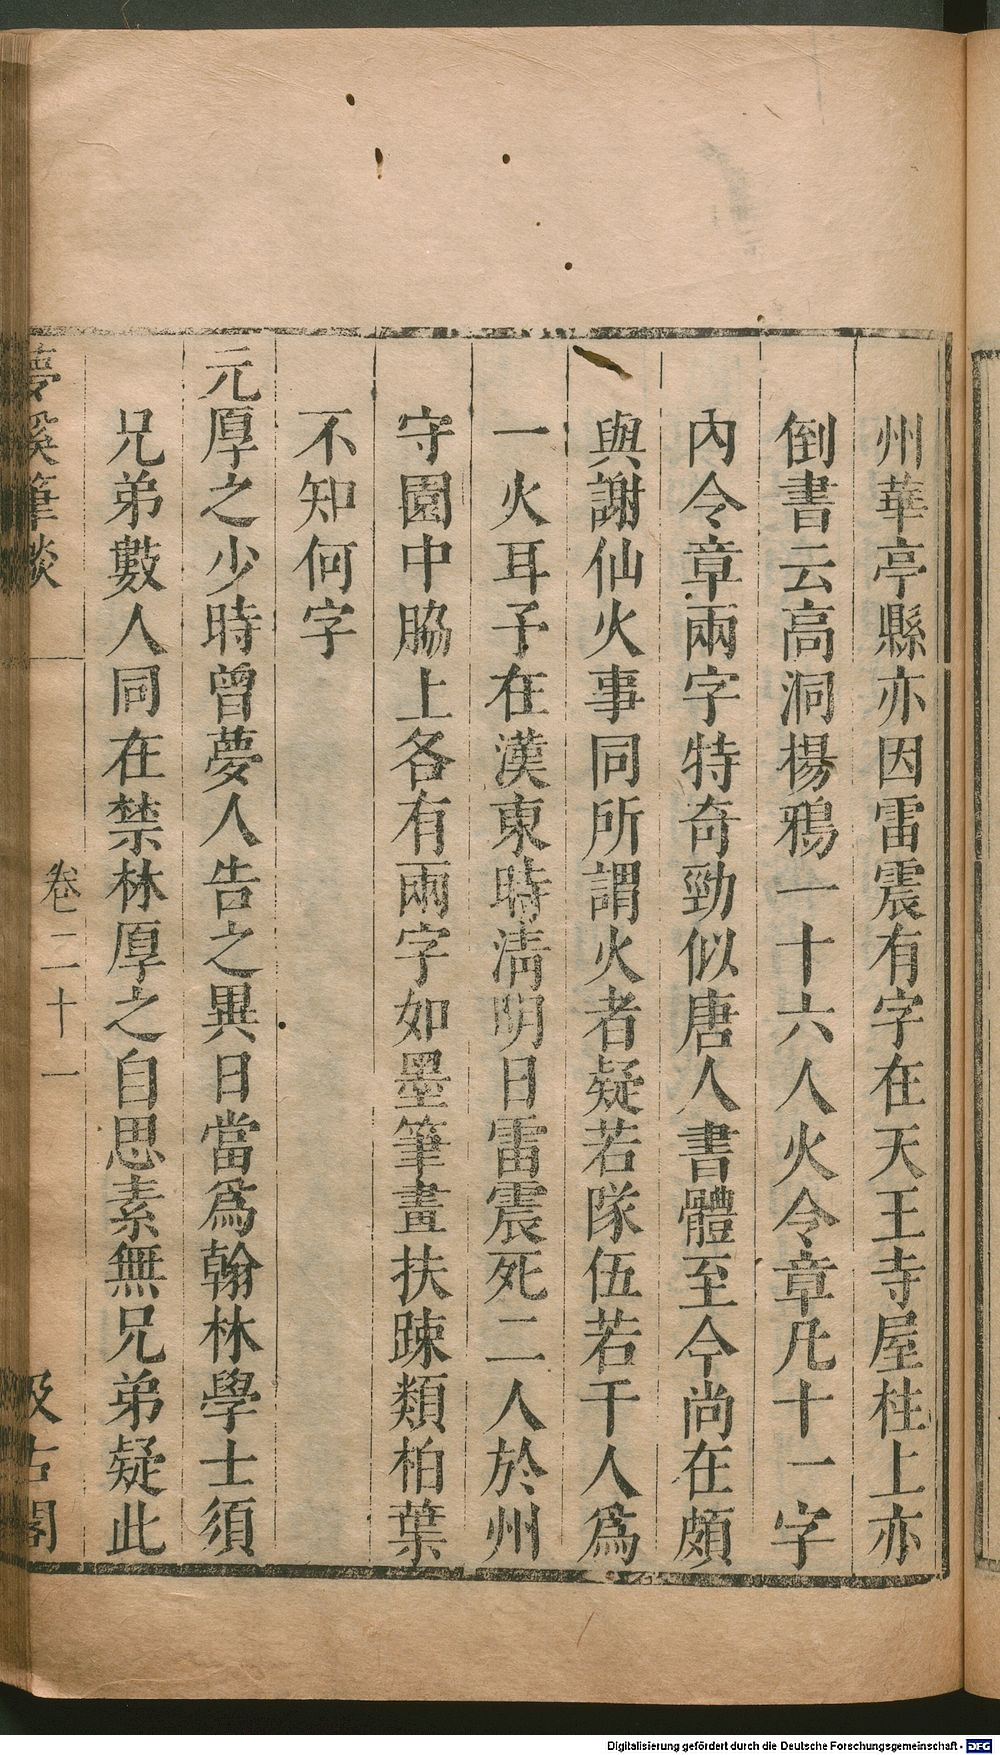 州華亭縣亦因雷震有字在天王寺屋柱上亦
倒書云高洞揚鴉一十六人火令章凡十一字
內令章兩字特奇勁似唐人書體至今尚在頗
與謝仙火事同所謂火者疑若隊伍若干人爲
一火耳予在漢東時淸明日雷震死二人於州
守園中脇上各有兩字如墨筆畫扶踈類柏葉
不知何字
元厚之少時曾夢人告之異日當爲翰林學士須
兄弟數人同在禁林厚之自思素無兄弟疑此
夢溪筆談 卷二十一 汲古閣
Digitalisierung gefördert durch die Deutsche Forschungsgemeinschaft - DFG